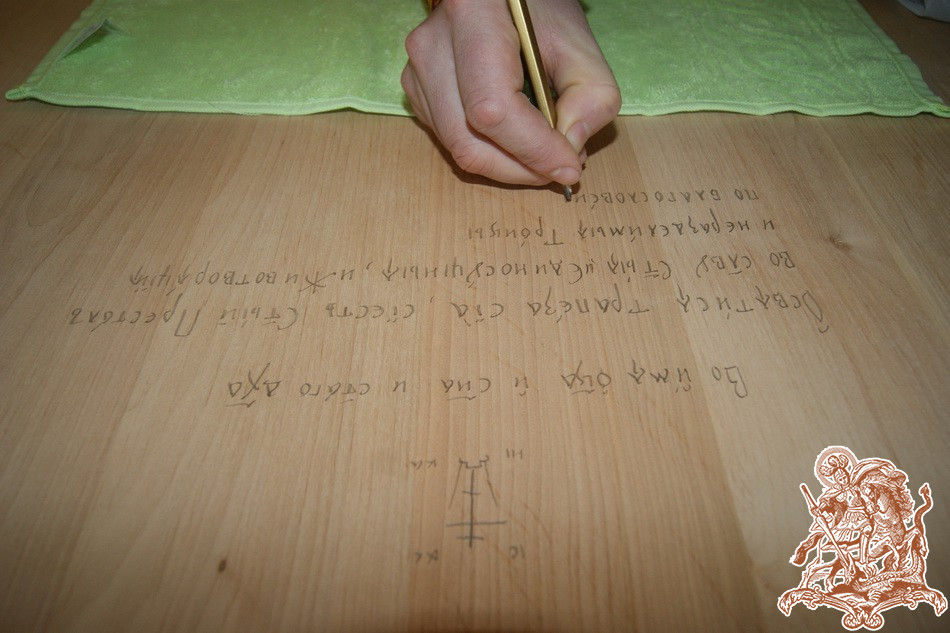 ІС ХС
НІ КА
Во и́мѧ ѻ҆ц҃а и҆ сн҃а и ст҃а́го дх҃а
Ѻсвѧти́сѧ трапе́за сїѧ̀, сїестъ Ст҃ы́й Престолъ
Во сла́вꙋ Ст҃ыѧ, єдиносꙋ́щныѧ, и Животворѧ́щїѧ
и нераздѣли́мыѧ Тро́ицы
по благослове́ни